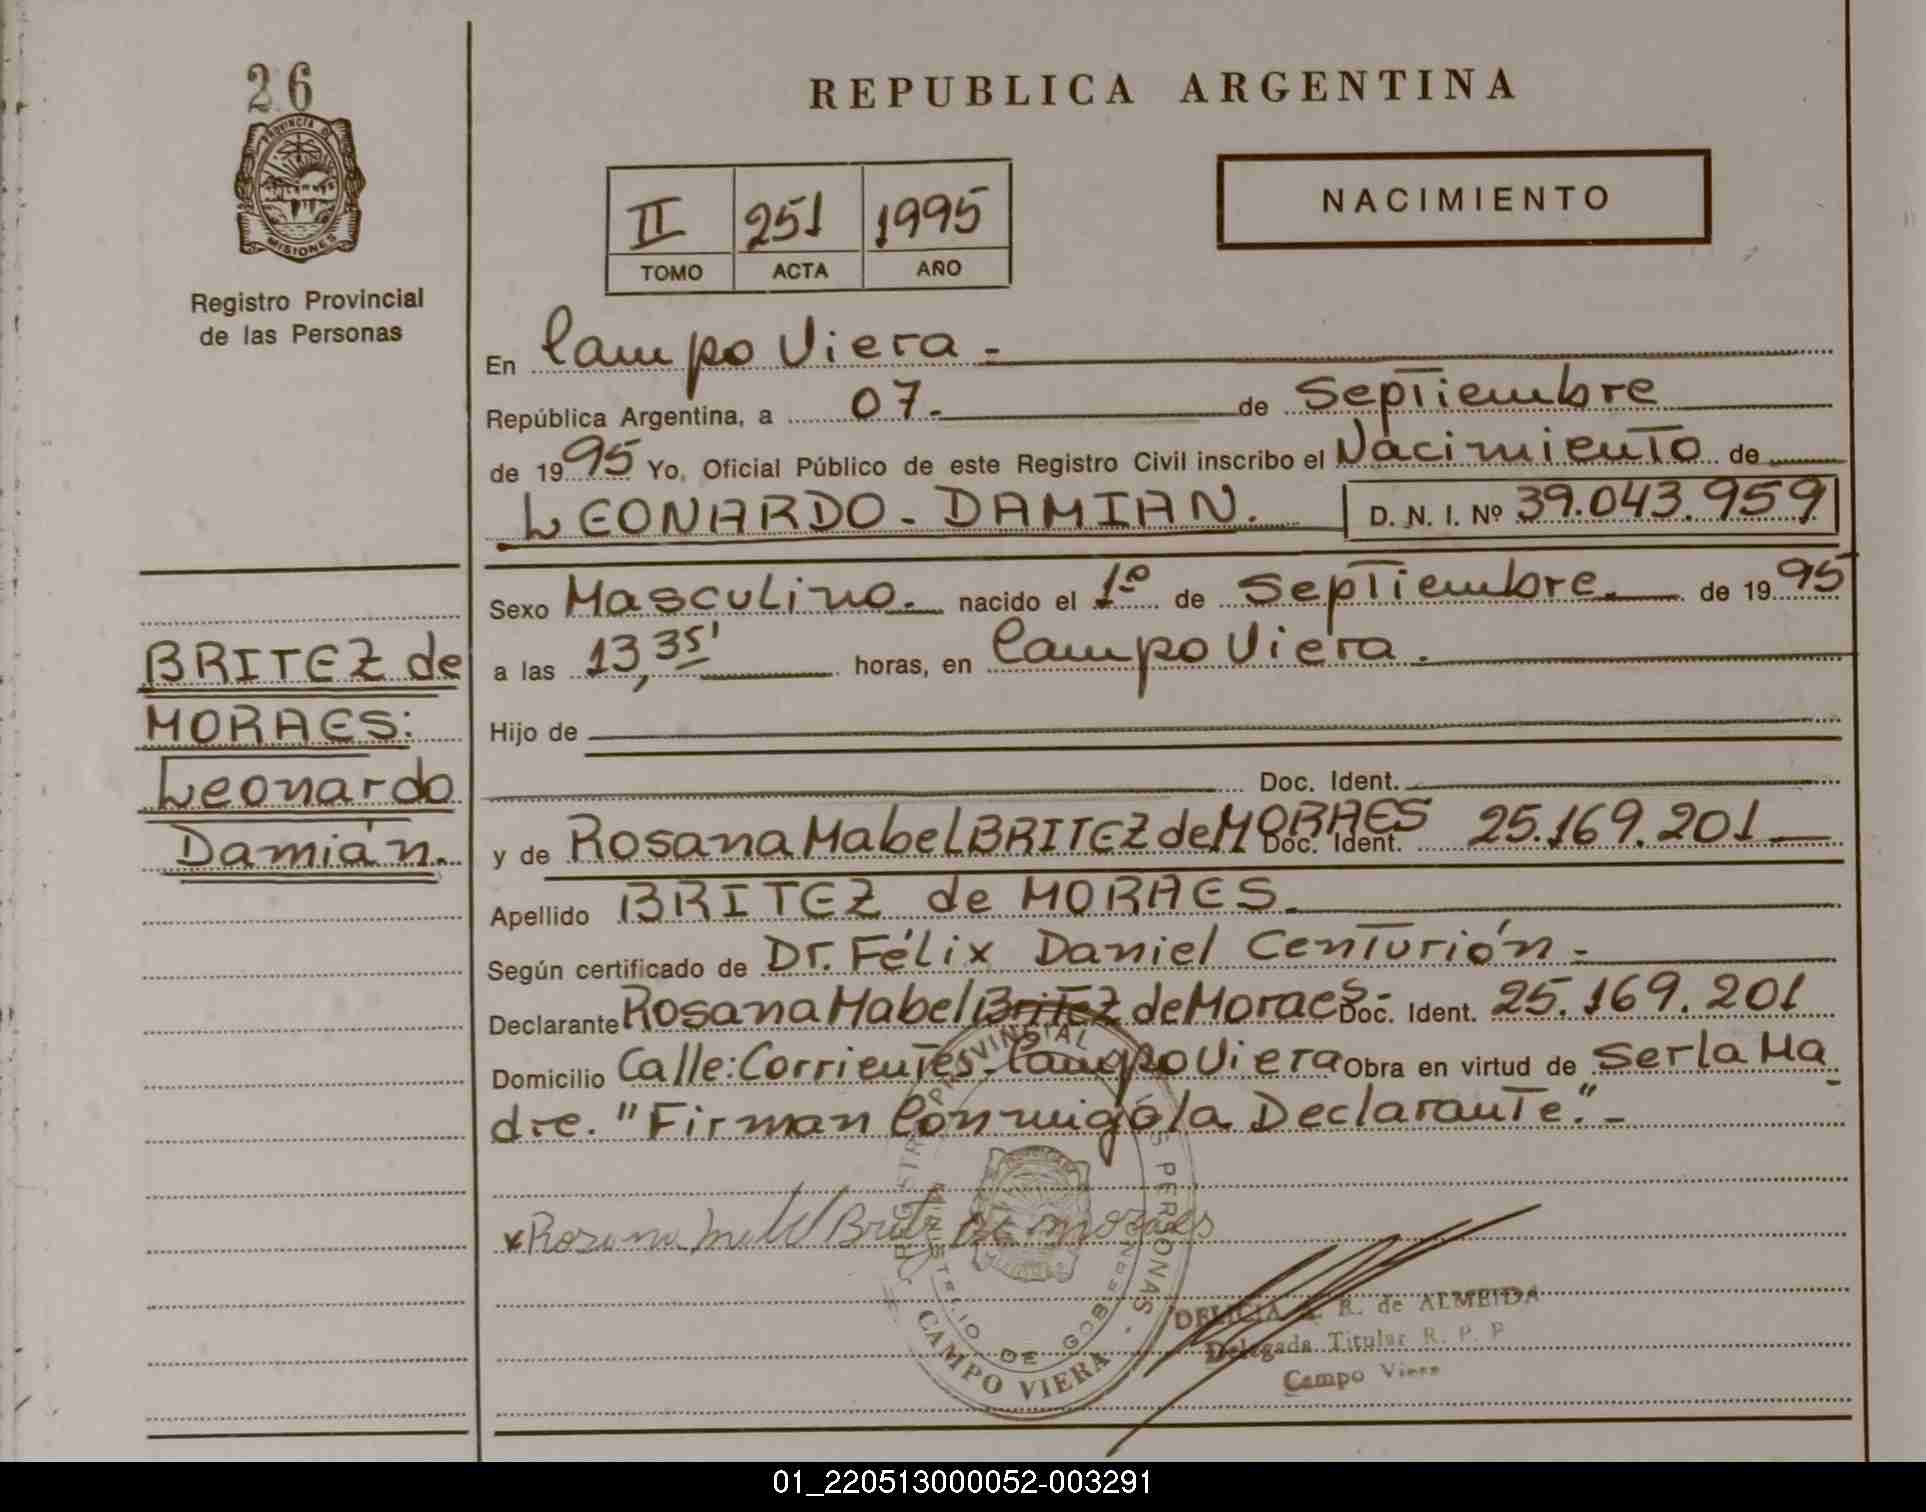 26
PROVINCIA DE
MISIONES
Registro Provincial
de las Personas
REPUBLICA ARGENTINA
II 251 1995
TOMO ACTA AÑO
NACIMIENTO
En Campo Viera.-
República Argentina, a 07.- de Septiembre
de 1995 Yo, Oficial Público de este Registro Civil inscribo el Nacimiento de
LEONARDO-DAMIAN. D. N. I. Nº 39.043.959
Sexo Masculino.- nacido el 1º de Septiembre. de 1995
a las 13,35' horas, en Campo Viera.
Hijo de
Doc. Ident.
y de Rosana Mabel BRITEZ de MORAES Doc. Ident. 25.169.201
Apellido BRITEZ de MORAES.
Según certificado de Dr. Félix Daniel Centurión.-
Declarante Rosana Mabel Britez de Moraes.- Doc. Ident. 25.169.201
Domicilio Calle: Corrientes.- Campo Viera Obra en virtud de Ser la Ma
dre. "Firman Conmigo la Declarante".-
BRITEZ de
MORAES:
Leonardo
Damián.
x Rosana Britez de moraes
PROVINCIAL
PERSONAS
DE GOB
CAMPO VIERA
DELICIA R. de ALMEIDA
Delegada Titular R. P. P
Campo Viera
01_220513000052-003291